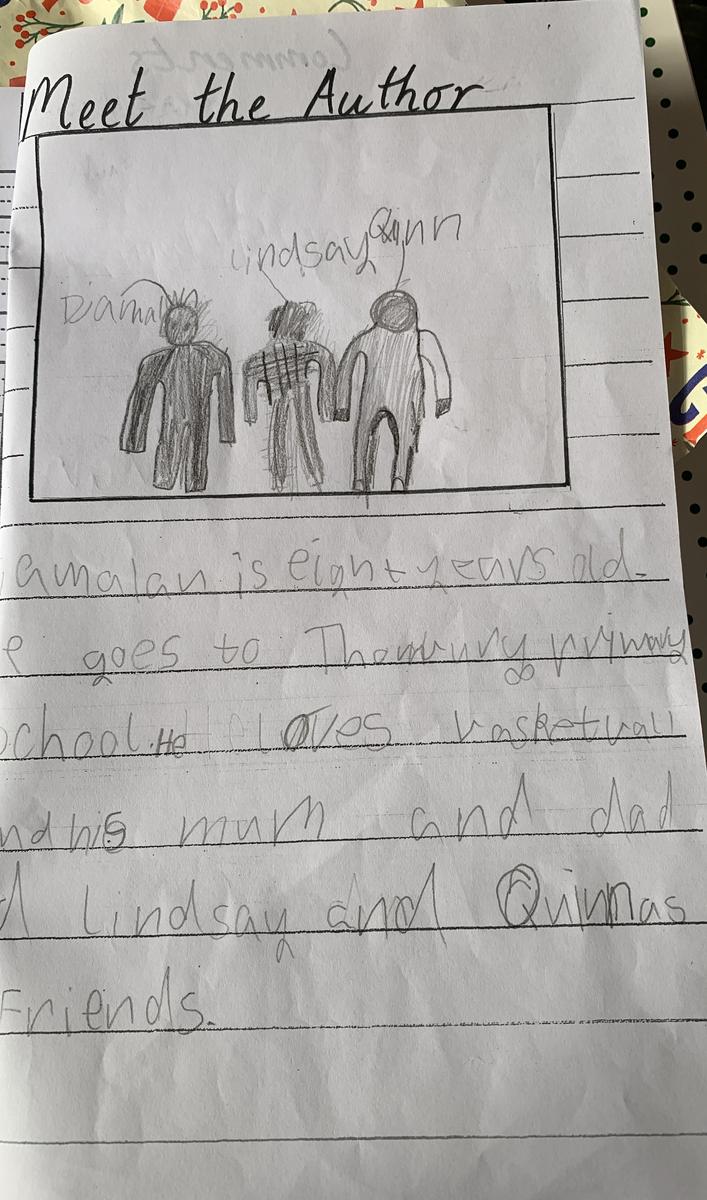 Comments
Meet the Author
Damal
Lindsay
Quinn
amalan is eight years old.
e goes to Thornbury primary
school. He loves basketball
nd his mum and dad
d Lindsay and Quinn as
Friends.